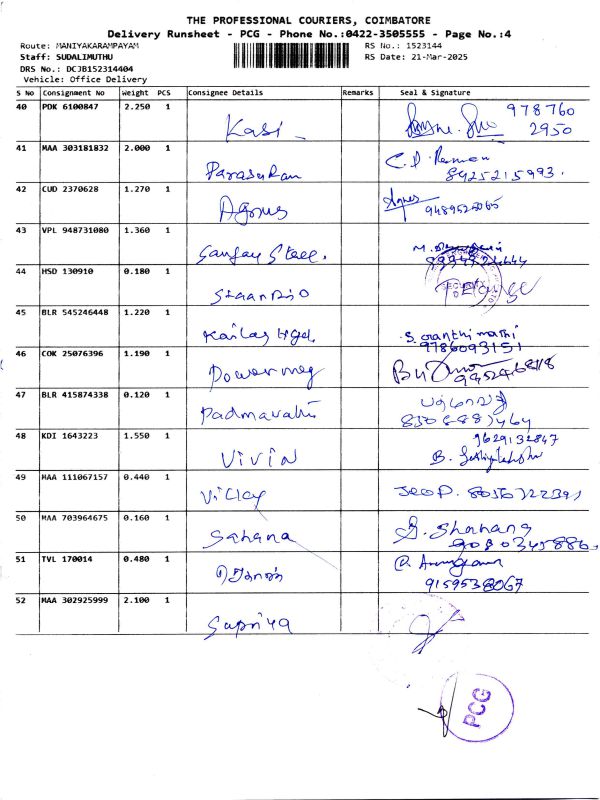 THE PROFESSIONAL COURIERS, COIMBATORE
Delivery Runsheet - PCG - Phone No.:0422-3505555 - Page No.:4
Route: MANIYAKARAMPAYAM RS No.: 1523144
Staff: SUDALIMUTHU RS Date: 21-Mar-2025
DRS No.: DCJB152314404
Vehicle: Office Delivery
S No Consignment No Weight PCS Consignee Details Remarks Seal & Signature
40 PDK 6100847 2.250 1 Kasi 978760
2950
41 MAA 303181832 2.000 1 Parasuran C.P. Raman
8925215993.
42 CUD 2370628 1.270 1 Agnus Agnes
43 VPL 948731080 1.360 1 Sanjay Steel.
44 HSD 130910 0.180 1
SECURITY
45 BLR 545246448 1.220 1 Kailas Hgd. S. ananthi mathi
9786093151
46 COK 25076396 1.190 1 Powermeg
47 BLR 415874338 0.120 1 Padmavathi
48 KDI 1643223 1.550 1 Vivin 9629132847
B.
49 MAA 111067157 0.440 1 Vijay
50 MAA 703964675 0.160 1 Sahana S. Shahana
9080345886.
51 TVL 170014 0.480 1
9159538067
52 MAA 302925999 2.100 1 Supriya
PCG